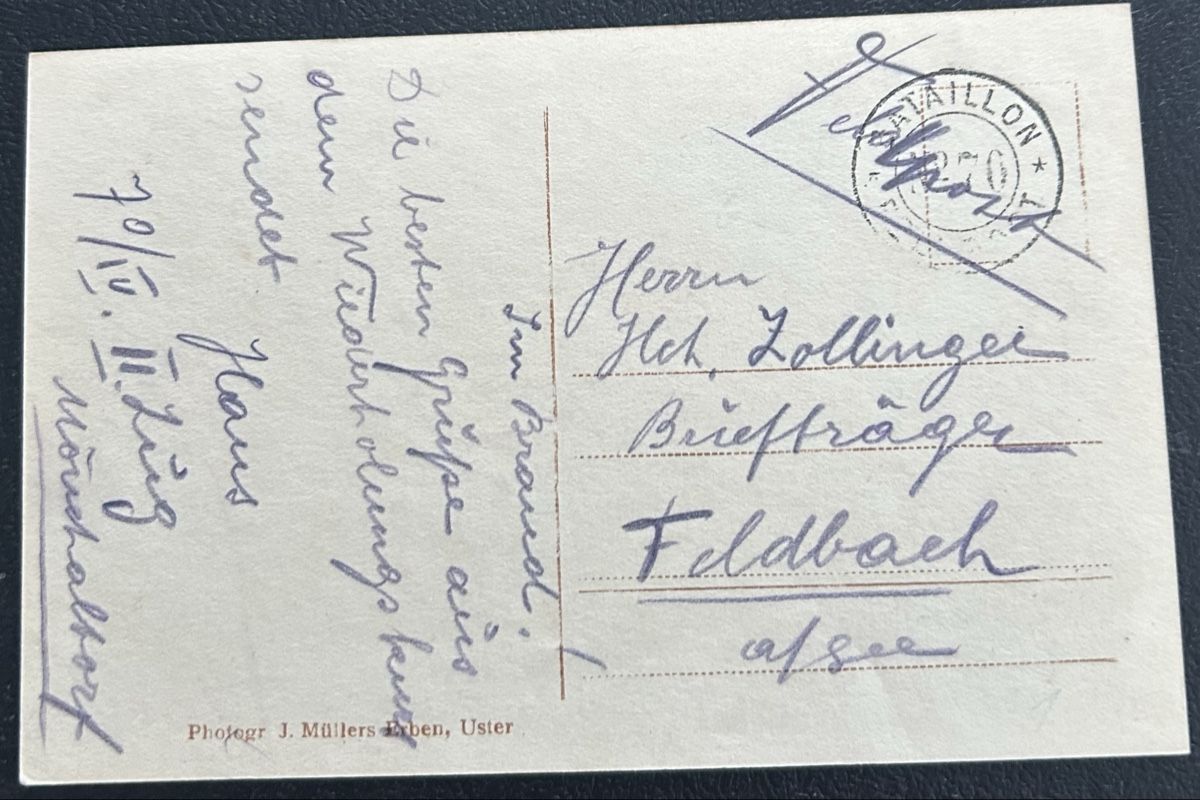 Die besten Grüße aus
dem Wiederholungskurs
sendet Hans
70/IV. II. Zug
Mönchaltorf
Feldpost
BATAILLON
Herrn
Hch. Zollinger
Briefträger
Feldbach
a/see
Im Brand.
Photogr J. Müllers Erben, Uster